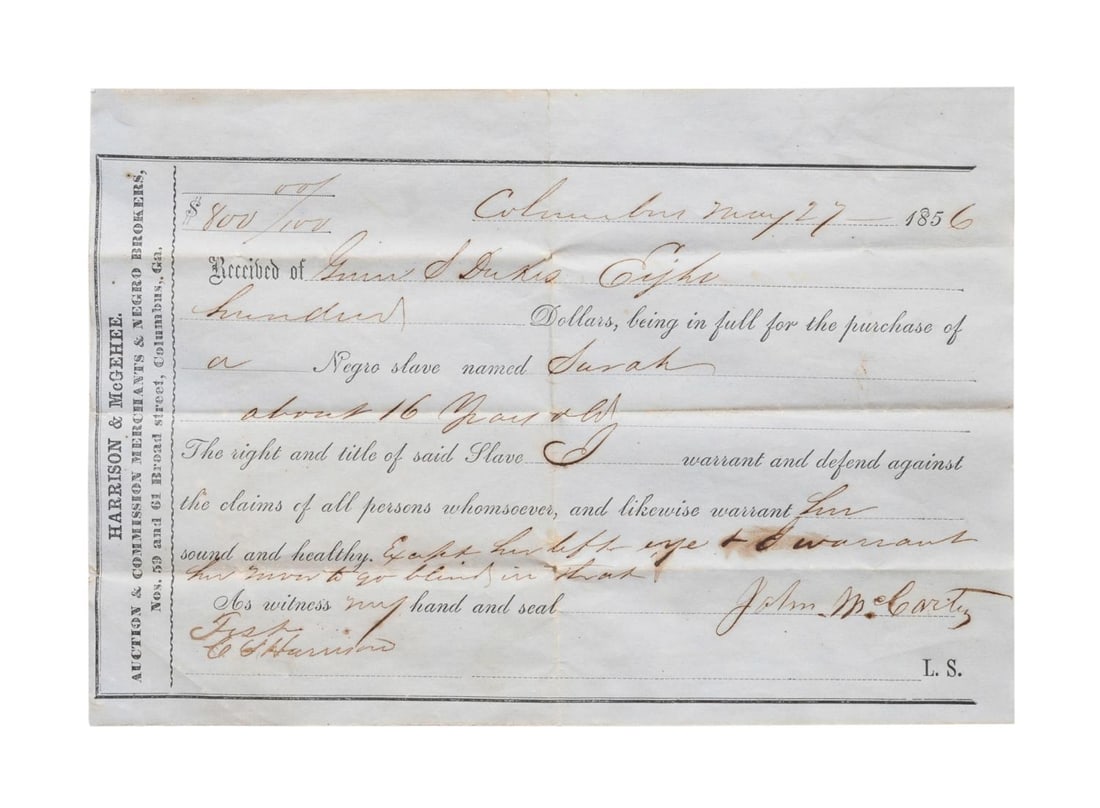 HARRISON & McGEHEE.
AUCTION & COMMISSION MERCHANTS & NEGRO BROKERS,
Nos. 59 and 61 Broad street, Columbus, Ga.
$ 800 00/100 Columbus May 27 1856
Received of S Dukes Eight
hundred Dollars, being in full for the purchase of
a Negro slave named Sarah
about 16 years old
The right and title of said Slave I warrant and defend against
the claims of all persons whomsoever, and likewise warrant her
sound and healthy. Except her left eye & I warrant
her to go blind in that
As witness my hand and seal John McCarty
Test
C S Harrison
L. S.